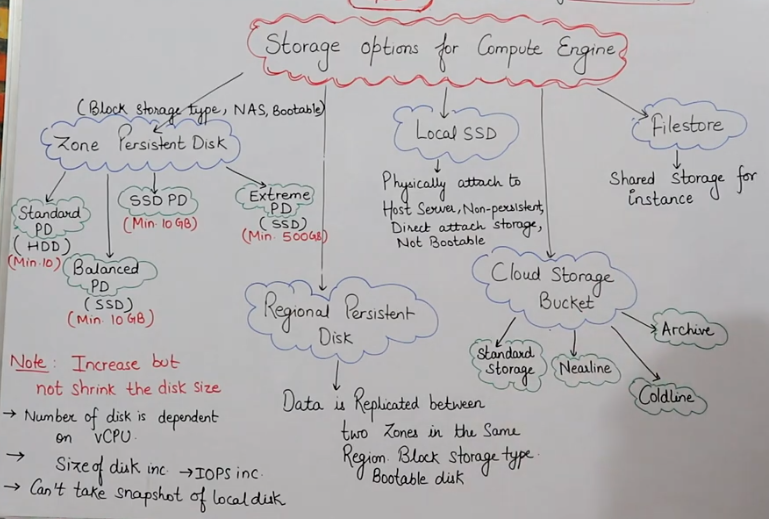 Storage options for Compute Engine
(Block storage type, NAS, Bootable)
Zone Persistent Disk
Standard
PD
(HDD)
(Min.10)
Balanced
PD
(SSD)
(Min. 10 GB)
SSD PD
(Min. 10 GB)
Extreme
PD
(SSD)
(Min. 500GB)
Regional Persistent
Disk
Data is Replicated between
two Zones in the Same
Region. Block storage type.
Bootable disk
Local SSD
Physically attach to
Host Server, Non-persistent,
Direct attach storage,
Not Bootable
Cloud Storage
Bucket
Standard
Storage
Nearline
Coldline
Archive
Filestore
Shared storage for
instance
Note: Increase but
not shrink the disk size
→ Number of disk is dependent
on vCPU.
→ Size of disk inc. → IOPS inc.
→ Can't take snapshot of local disk